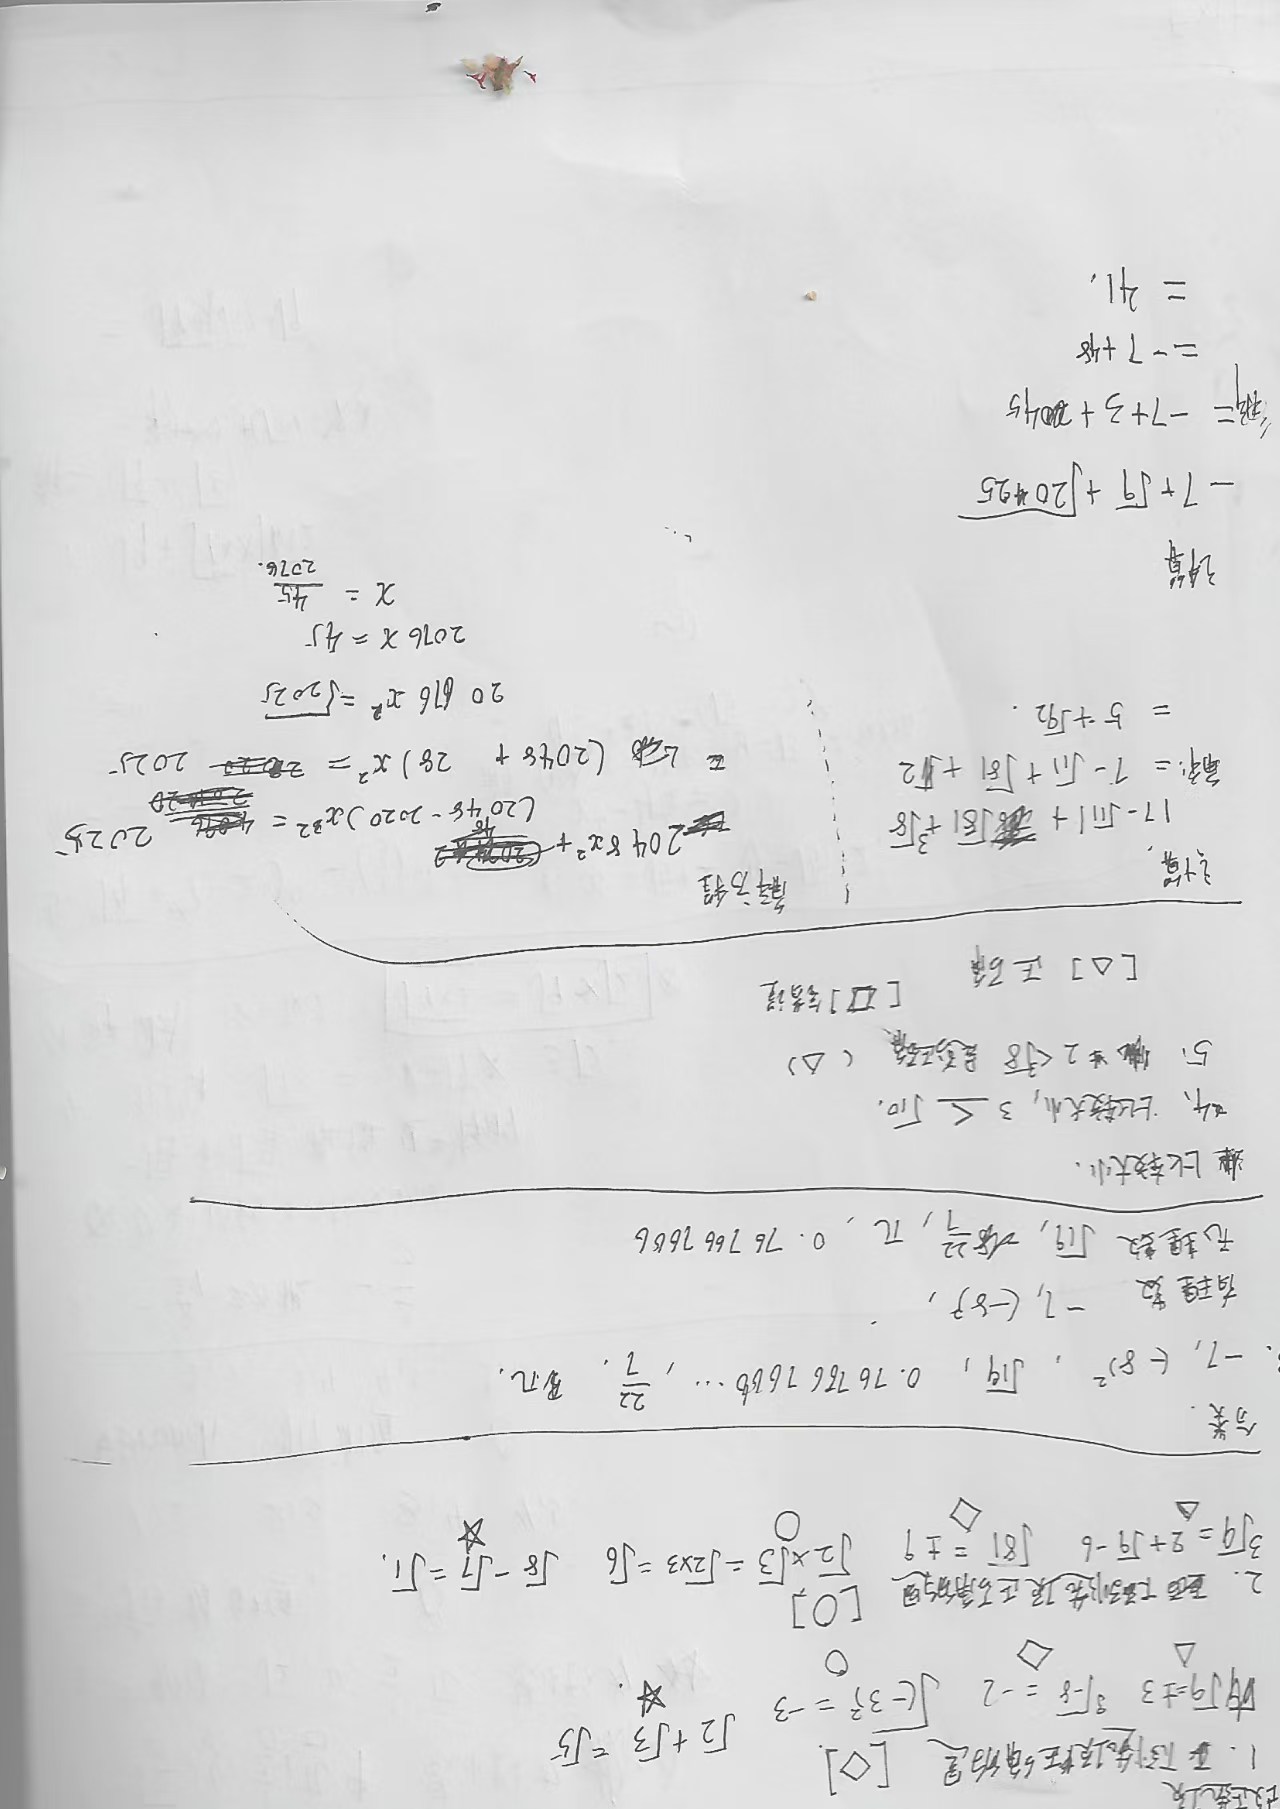 1. 下列选项正确的是 [◇]
√9=±3 ³√-8 = -2 √(-3)² = -3 √2+√3=√5
△ ◇ ○ ☆
2. 下列选项正确的是 [○]
3√9=2+√9-6 √81=±9 √2×√3=√2×3=√6 √8-√7=√1.
△ ◇ ○ ☆
分类.
-7, (-8)², √19, 0.7676676668…, 22/7, π.
有理数 -7, (-8)²,
无理数 √19, 22/7, π, 0.7676676666
比较大小.
4. 比较大小, 3 < √10.
5. 2<³√8 是否正确 (△)
[△] 正确 [□] 错误
计算.
17-√111+√81+³√8
解: = 7-√11+√81+√2
= 5+√92.
解方程
2048x²+
(2048-2020)x²= 2025
= (2048+28)x²= 2025
2076x²=√2025
2076x=45
x = 45/2076.
计算
-7+√9+√2025
= -7+3+45
= -7+48
= 41.